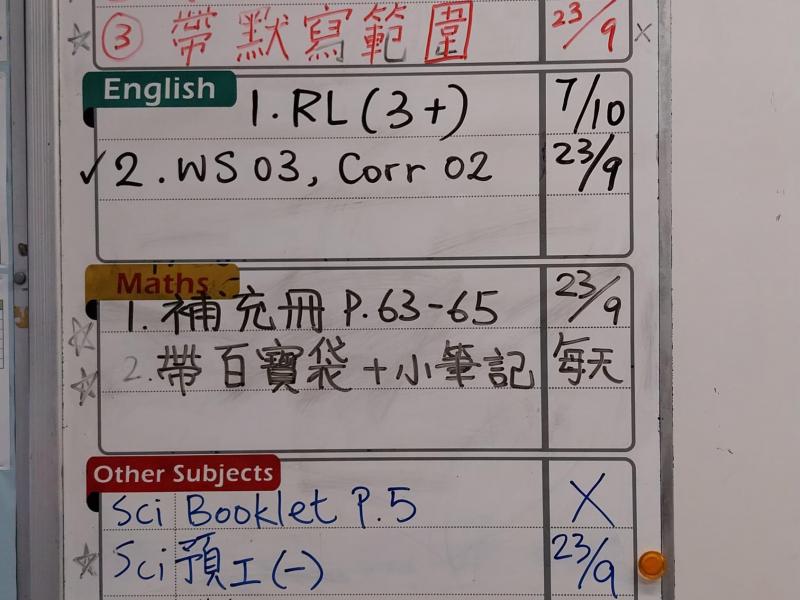 ③ 帶默寫範圍 23/9
English
1. RL (3+) 7/10
✓ 2. WS 03, Corr 02 23/9
Maths
1. 補充冊 P.63-65 23/9
2. 帶百寶袋+小筆記 每天
Other Subjects
Sci Booklet P.5 X
Sci 預工(一) 23/9